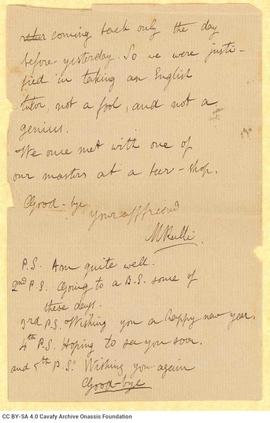 coming back only the day
before yesterday. So we were justi-
fied in taking an English
tutor, not a fool, and not a
genius.
We once met with one of
our masters at a beer-shop.
Good-bye
your aff friend
MRalli
P.S. Am quite well.
2nd P.S. Going to a B.S. some of
these days.
3rd P.S. Wishing you a happy new year.
4th P.S. Hoping to see you soon.
and 5th P.S! Wishing you again
Good-bye
CC BY-SA 4.0 Cavafy Archive Onassis Foundation